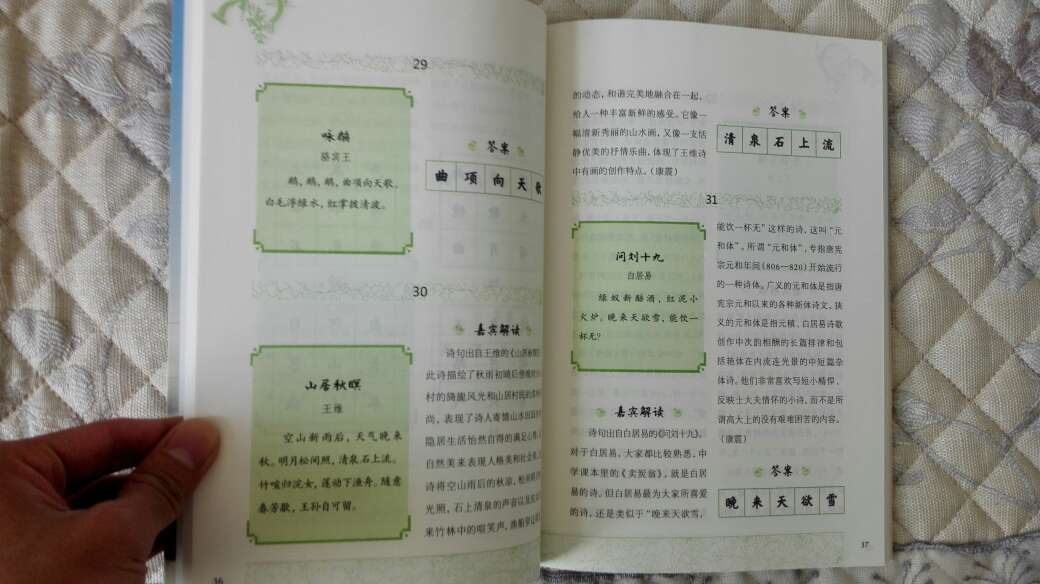 29
咏鹅
骆宾王
鹅，鹅，鹅，曲项向天歌。
白毛浮绿水，红掌拨清波。
答案
曲项向天歌
30
山居秋暝
王维
空山新雨后，天气晚来
秋。明月松间照，清泉石上流。
竹喧归浣女，莲动下渔舟。随意
春芳歇，王孙自可留。
嘉宾解读
诗句出自王维的《山居秋暝
此诗描绘了秋雨初晴后傍晚时分
村的旖旎风光和山居村民的淳朴
尚，表现了诗人寄情山水田园
隐居生活怡然自得的满足心情，
自然美来表现人格美和社会
诗将空山雨后的秋凉，松间
光照，石上清泉的声音以及
来竹林中的喧笑声，渔船穿过
36
的动态，和谐完美地融合在一起，
给人一种丰富新鲜的感受。它像一
幅清新秀丽的山水画，又像一支恬
静优美的抒情乐曲，体现了王维诗
中有画的创作特点。（康震）
答案
清泉石上流
31
问刘十九
白居易
绿蚁新醅酒，红泥小
火炉。晚来天欲雪，能饮一
杯无？
嘉宾解读
诗句出自白居易的《问刘十九》。
对于白居易，大家都比较熟悉，中
学课本里的《卖炭翁》，就是白居
易的诗。但白居易最为大家所喜爱
的诗，还是类似于“晚来天欲雪，
能饮一杯无”这样的诗，这叫“元
和体”，所谓“元和体”，专指唐宪
宗元和年间（806—820）开始流行
的一种诗体。广义的元和体是指唐
宪宗元和以来的各种新体诗文，狭
义的元和体是指元稹、白居易诗歌
创作中次韵相酬的长篇排律和包
括艳体在内流连光景的中短篇杂
体诗。他们非常喜欢写短小精悍、
反映士大夫情怀的小诗，而不是所
谓高大上的没有艰难困苦的内容。
（康震）
答案
晚来天欲雪
37